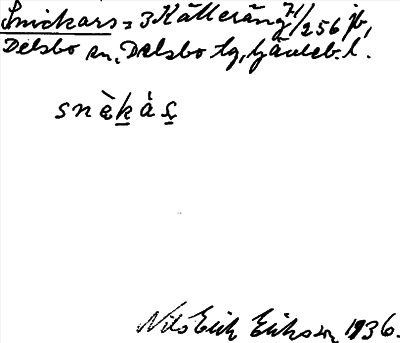 Snickars = 3 Källeräng 7 1/256 jb,
Delsbo sn, Delsbo tg, Gävleb. l.
snὲkàs
Nils Erik Erikson 1936.